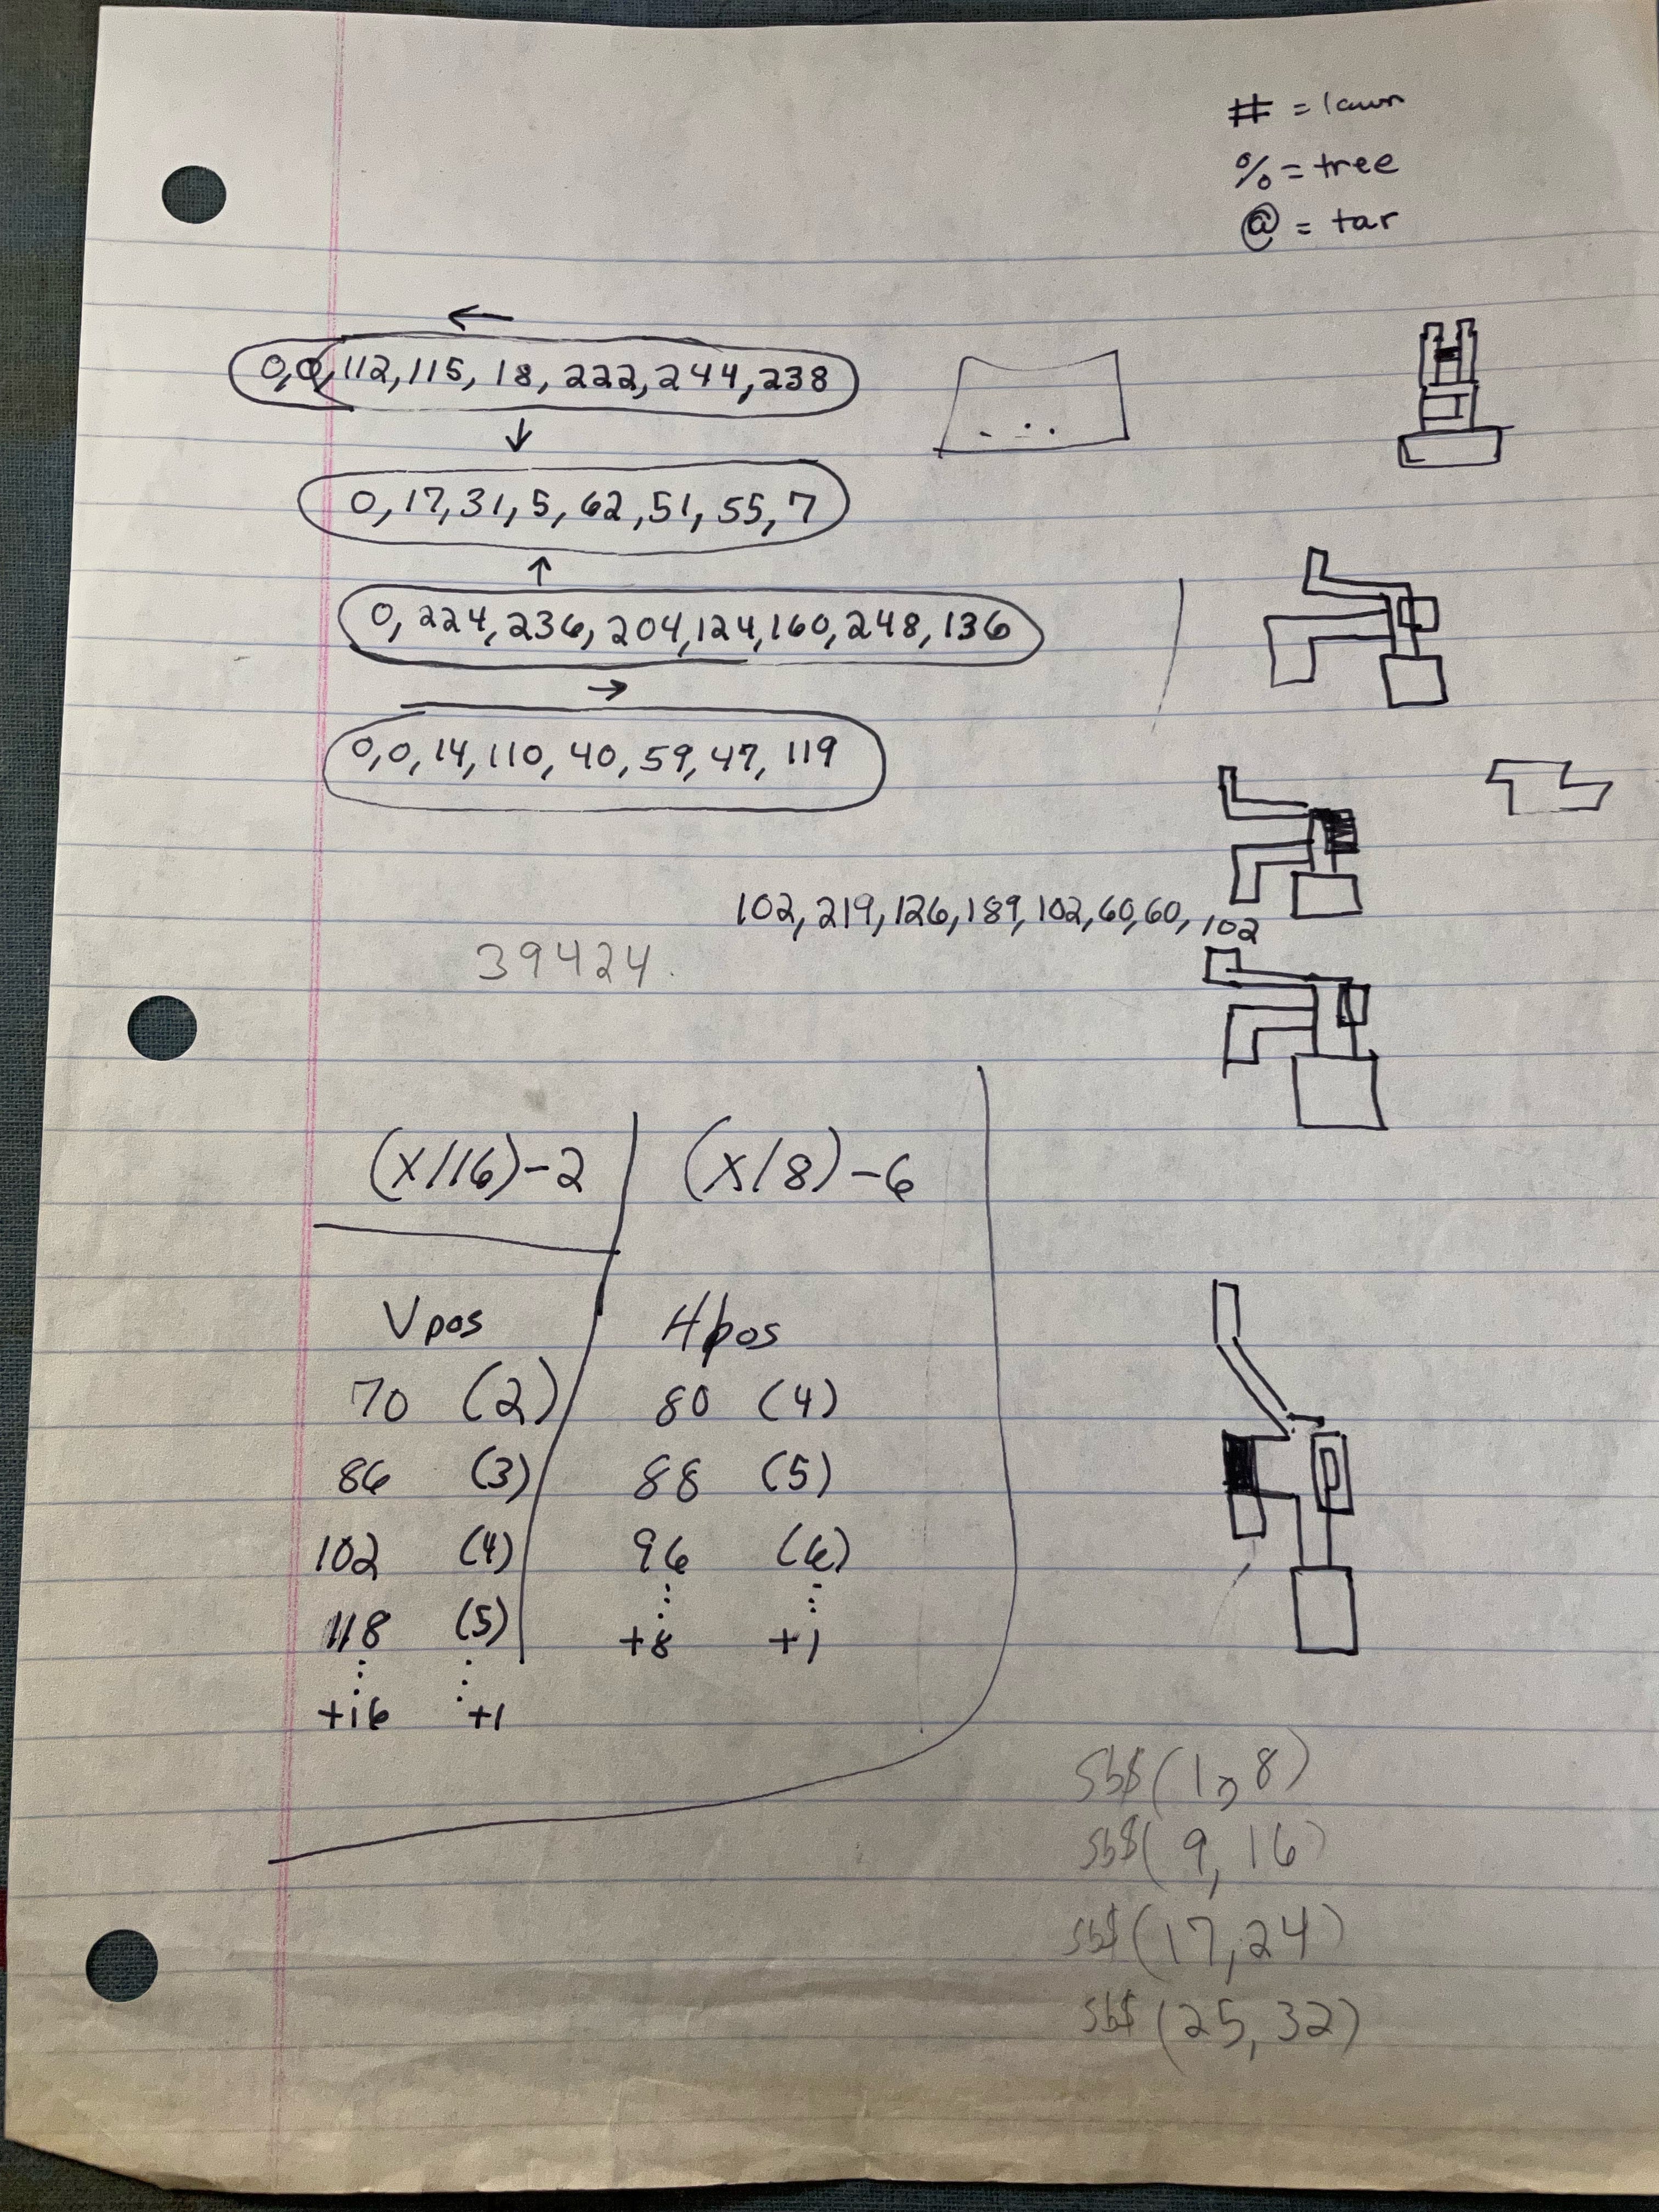 # = lawn
% = tree
@ = tar
←
0,0,112,115,18,222,244,238
↓
0,17,31,5,62,51,55,7
↑
0,224,236,204,124,160,248,136
→
0,0,14,110,40,59,47,119
102,219,126,189,102,60,60,102
39424.
(x/16)-2 (x/8)-6
Vpos Hpos
70 (2) 80 (4)
86 (3) 88 (5)
102 (4) 96 (6)
118 (5) +8 +1
+16 +1
sb$(1,8)
sb$(9,16)
sb$(17,24)
sb$(25,32)